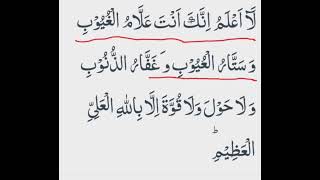 لَآ اَعْلَمُ اِنَّكَ اَنْتَ عَلَّامُ الْغُيُوْبِ
وَ سَتَّارُ الْعُيُوْبِ وَ غَفَّارُ الذُّنُوْبِ
وَلَا حَوْلَ وَلَا قُوَّةَ اِلَّا بِاللهِ الْعَلِيِّ
الْعَظِيْمِؕ